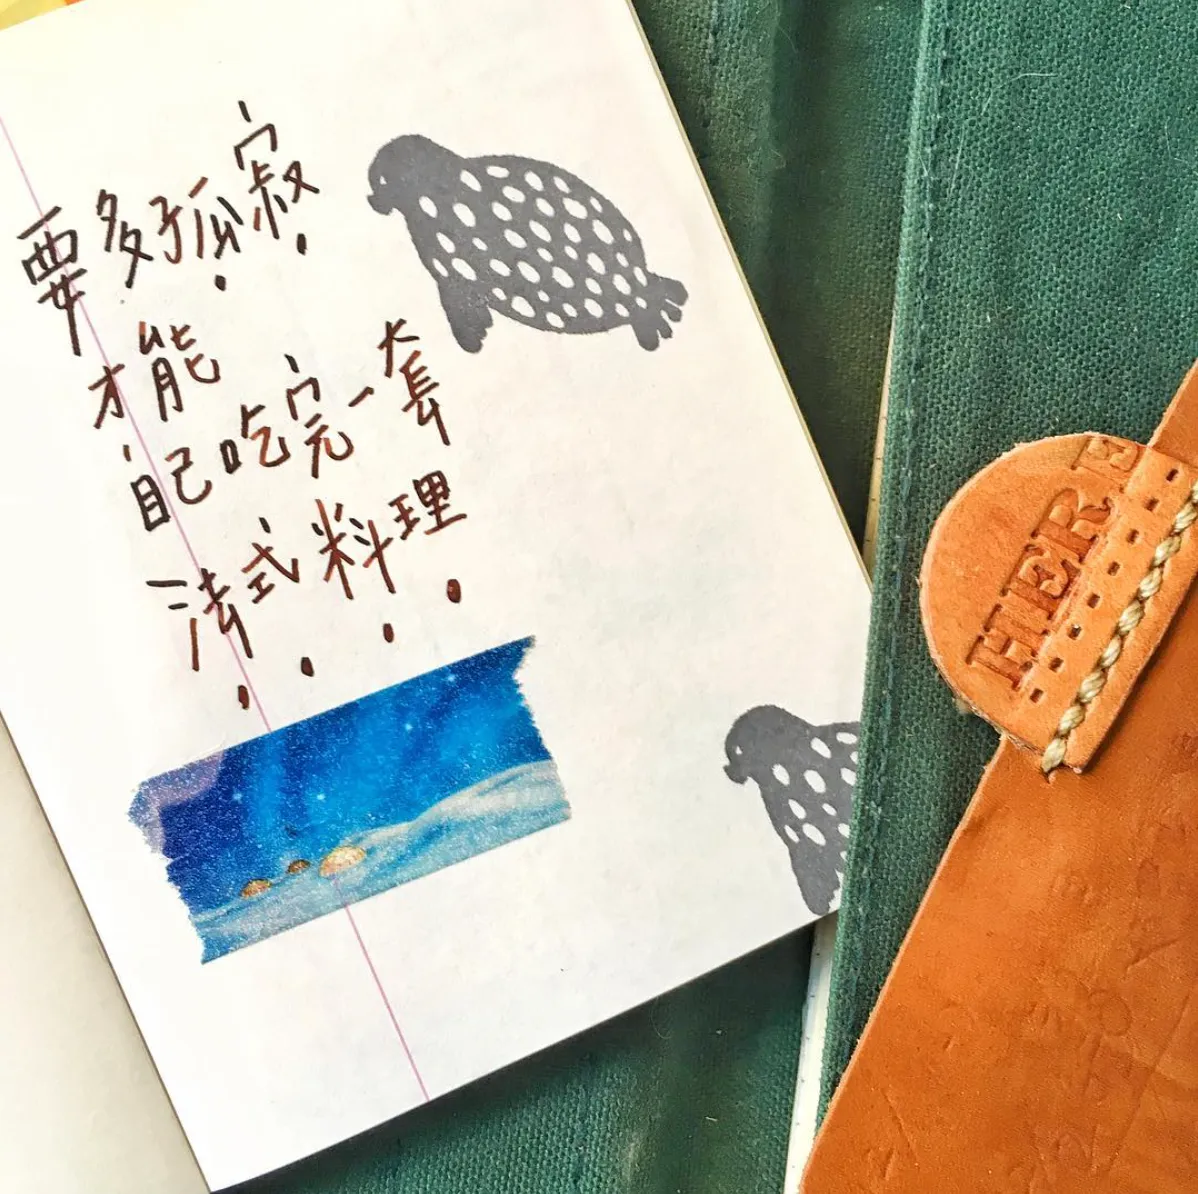 要多孤寂
才能
自己吃完一套
法式料理
HERE